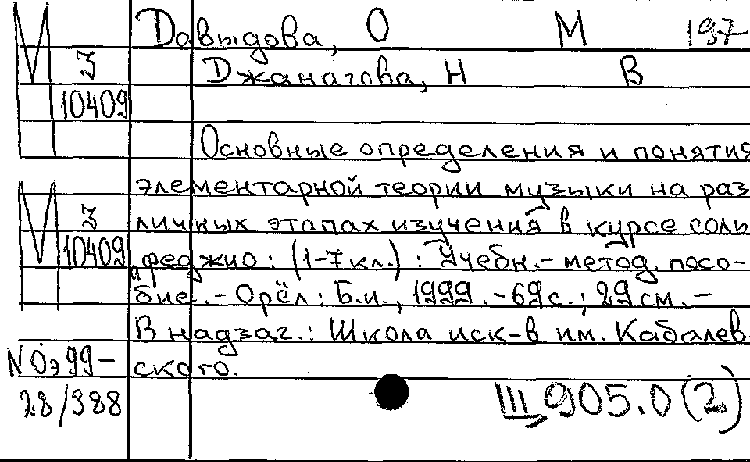 Давыдова, О М 197
М З Джанагова, Н В
10409
Основные определения и понятия
элементарной теории музыки на раз
М З личных этапах изучения в курсе соль
10409 феджио: (1-7 кл.) : Учебн.-метод. посо-
бие. - Орёл : Б.и., 1999. - 69с. ; 29 см. -
В надзаг.: Школа иск-в им. Кабалев
NОэ99- ского.
28/388 III 905.0 (2)